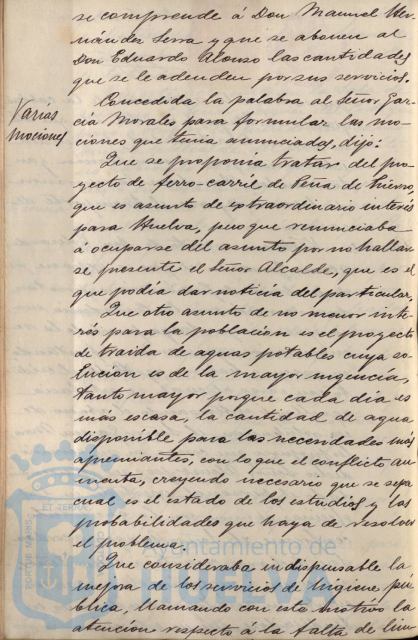 se comprende á Don Manuel Her-
nández Serra y que se abonen al
Don Eduardo Alonso las cantidades
que se le adeuden por sus servicios.
Varias
mociones
Concedida la palabra al Señor Gar-
cía Morales para formular las mo-
ciones que tenia anunciadas, dijo:
Que se proponia tratar del pro-
yecto de ferro-carril de Peña de Hierro,
que es asunto de extraordinario interés
para Huelva, pero que renunciaba
á ocuparse del asunto por no hallar-
se presente el Señor Alcalde, que es el
que podia dar noticia del particular.
Que otro asunto de no menor inte-
rés para la poblacion es el proyecto
de traida de aguas potables cuya so-
lucion es de la mayor urgencia,
tanto mayor porque cada dia es
más escasa, la cantidad de agua
disponible para las necesidades más
apremiantes, con lo que el conflicto au-
menta, creyendo necesario que se sepa
cual es el estado de los estudios y las
probabilidades que haya de resolver
el problema.
Que consideraba indispensable la
mejora de los servicios de higiene pú-
blica, llamando con este motivo la
atencion respecto á la falta de lim-
Ayuntamiento de
HUELVA